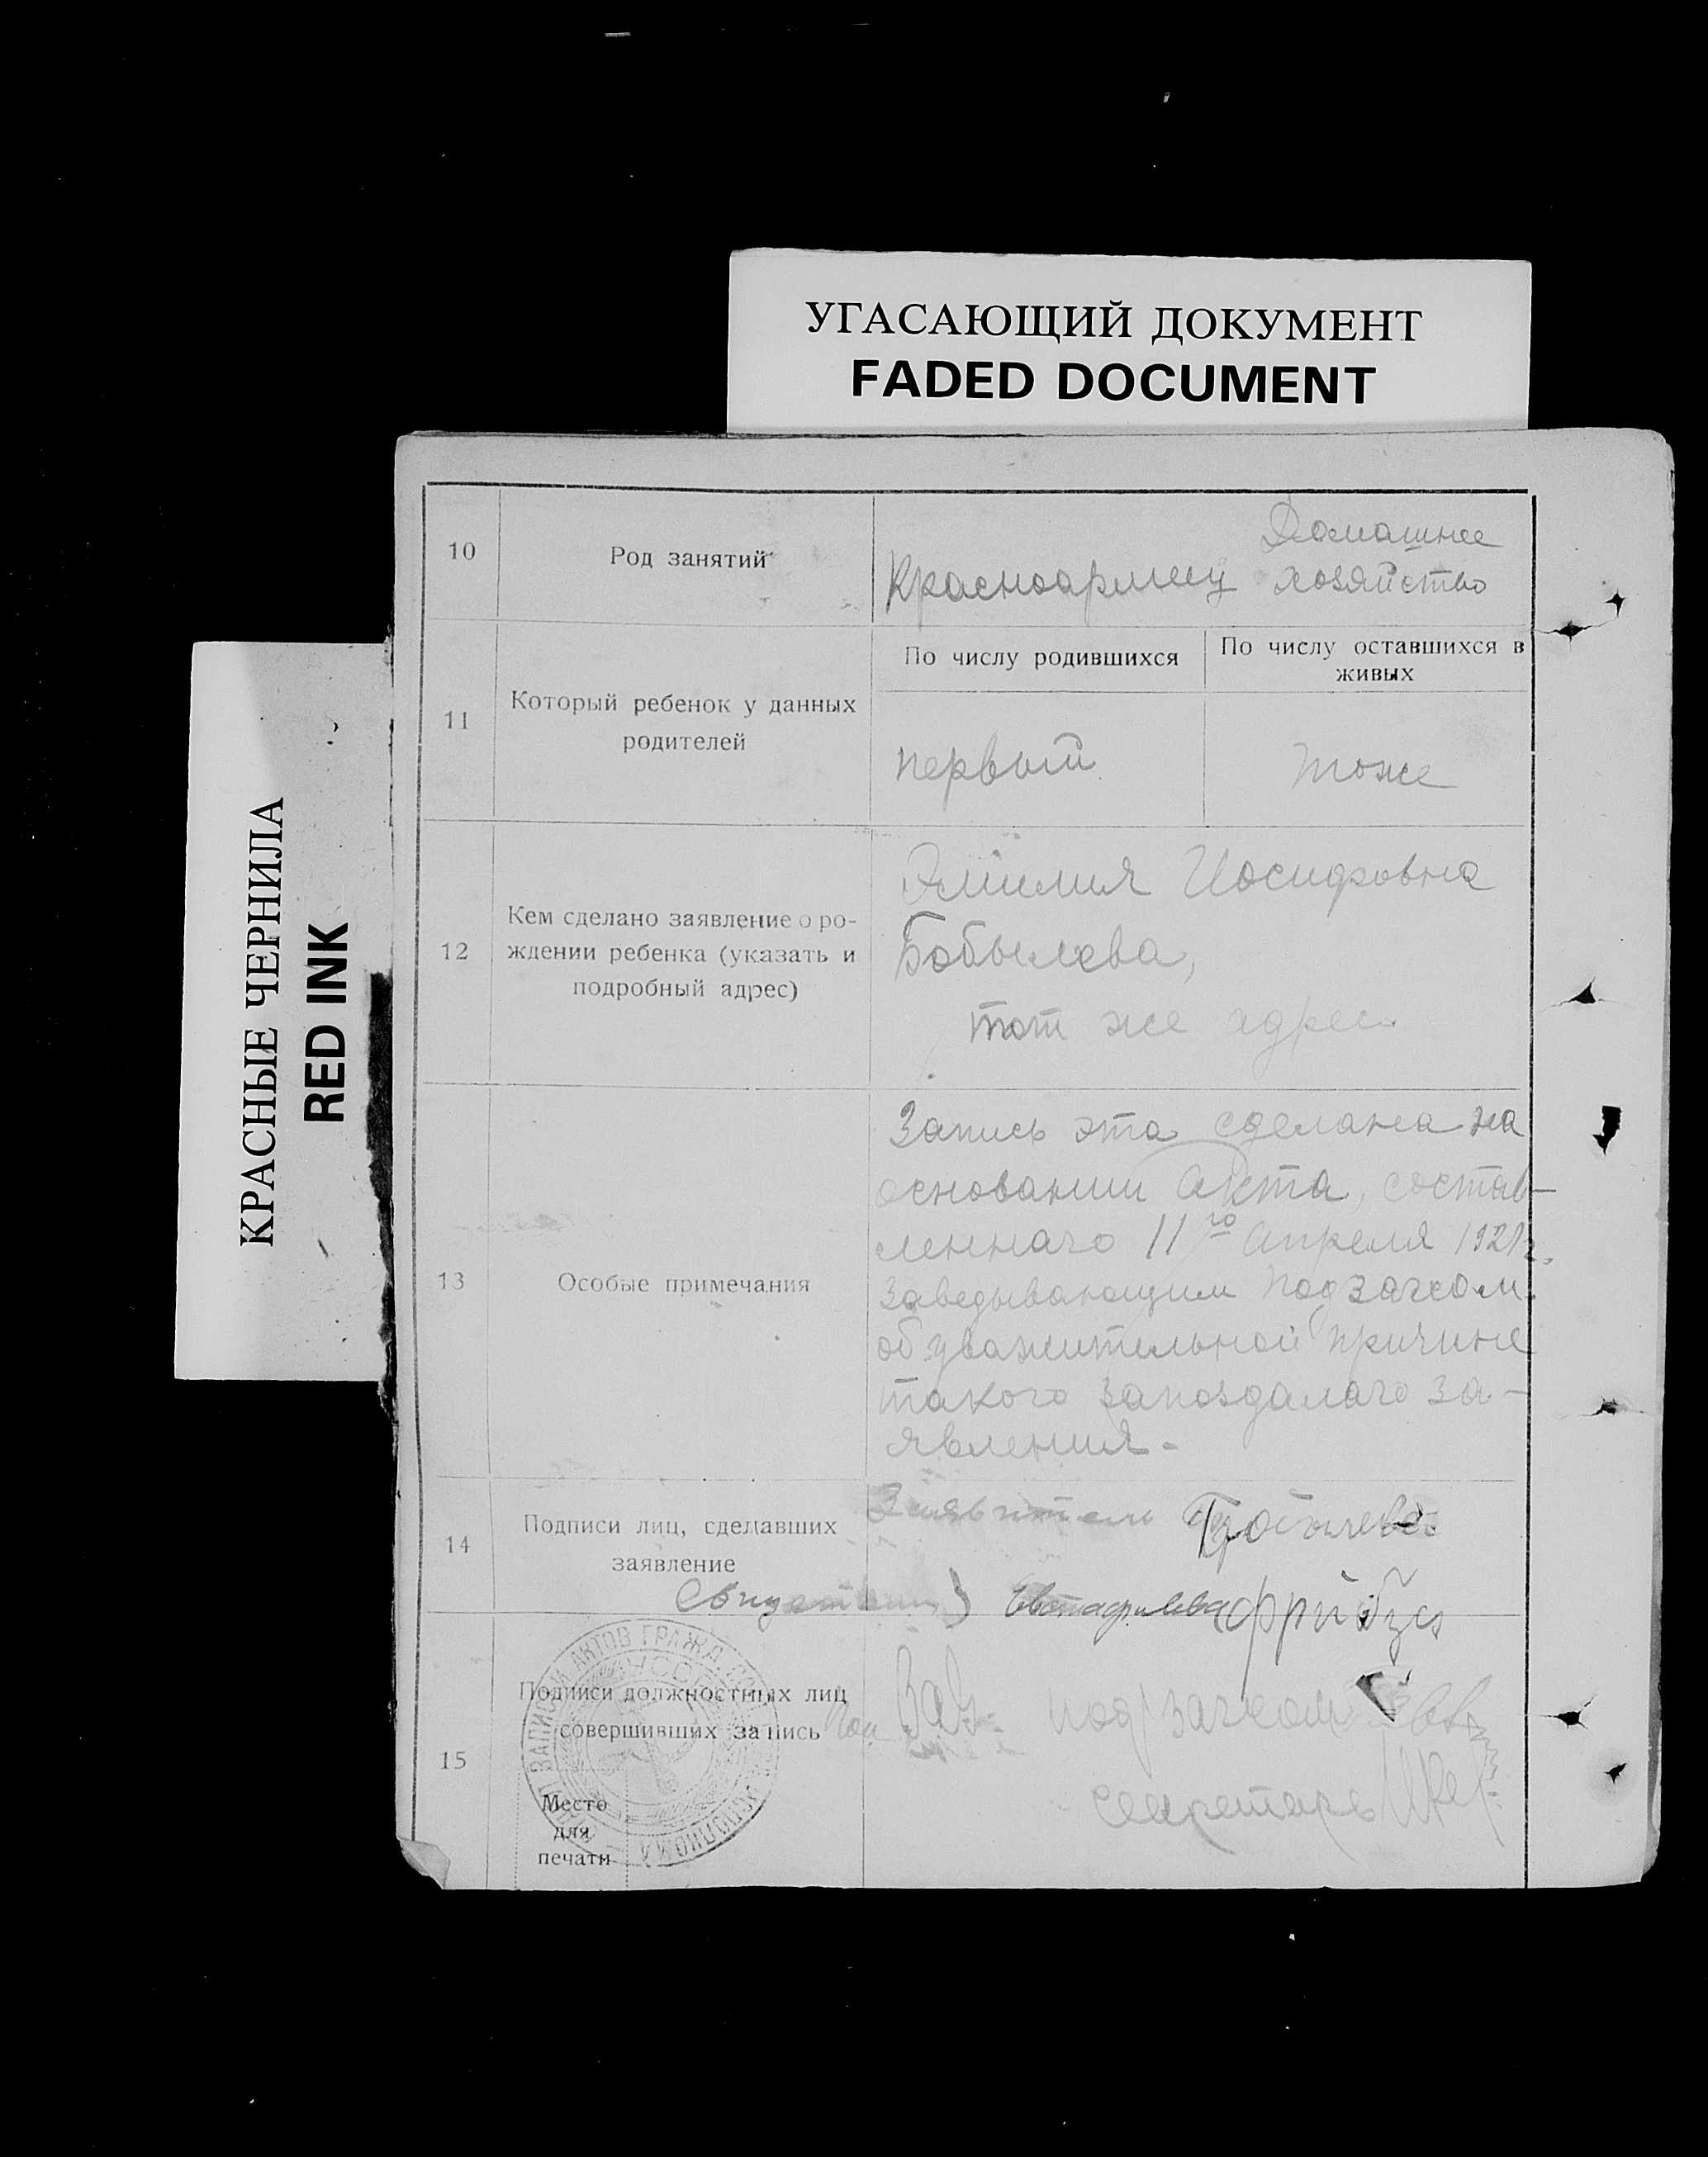 УГАСАЮЩИЙ ДОКУМЕНТ
FADED DOCUMENT
КРАСНЫЕ ЧЕРНИЛА
RED INK
10
Род занятий
Домашнее
Красноармеец хозяйство
11
Который ребенок у данных
родителей
По числу родившихся
По числу оставшихся в
живых
первый
тоже
12
Кем сделано заявление о ро-
ждении ребенка (указать и
подробный адрес)
Эмилия Иосифовна
Бобылева,
тот же адрес
13
Особые примечания
Запись эта сделана на
основании акта, состав-
леннаго 11го Апреля 1921г.
Заведывающим подзагсом
об уважительной причине
такого запоздалаго за-
явления.
14
Подписи лиц, сделавших
заявление
Заявитель
Свидетели
15
Подписи должностных лиц
совершивших запись
Место
для
печати
Зав. подзагсом
Секретарь
ЗАПИСИ АКТОВ ГРАЖД.
УССР